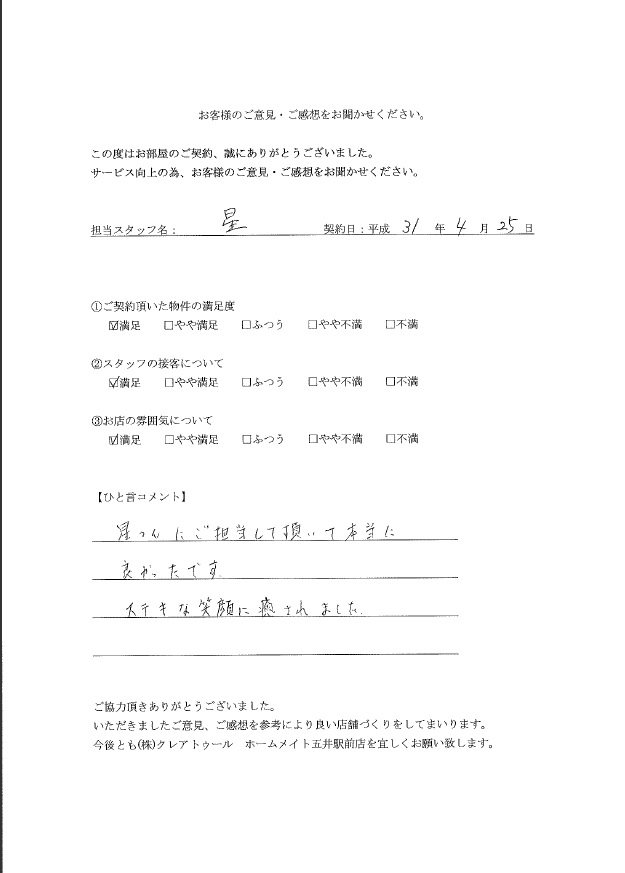 お客様のご意見・ご感想をお聞かせください。
この度はお部屋のご契約、誠にありがとうございました。
サービス向上の為、お客様のご意見・ご感想をお聞かせください。
担当スタッフ名： 星 契約日：平成 31 年 4 月 25 日
①ご契約頂いた物件の満足度
☑満足 □やや満足 □ふつう □やや不満 □不満
②スタッフの接客について
☑満足 □やや満足 □ふつう □やや不満 □不満
③お店の雰囲気について
☑満足 □やや満足 □ふつう □やや不満 □不満
【ひと言コメント】
星さんにご担当して頂いて本当に
良かったです.
ステキな笑顔に癒されました.
ご協力頂きありがとうございました。
いただきましたご意見、ご感想を参考により良い店舗づくりをしてまいります。
今後とも(株)クレアトゥール ホームメイト五井駅前店を宜しくお願い致します。